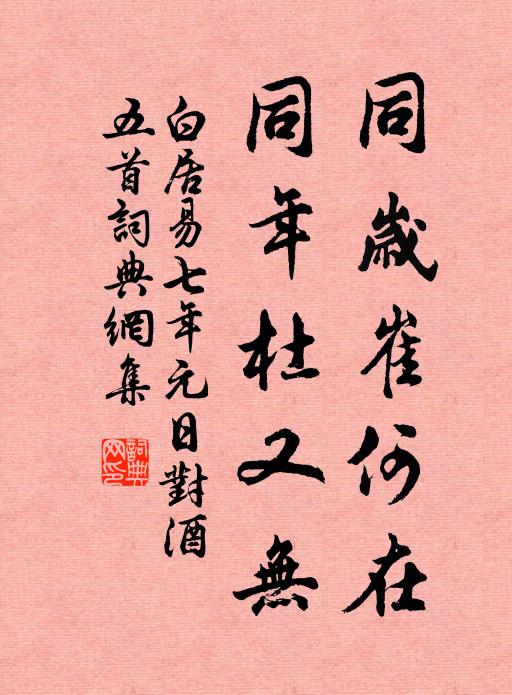 同歲崔何在
同年杜又無
白居易七年元日對酒
五首詞典網集
詞典
网印